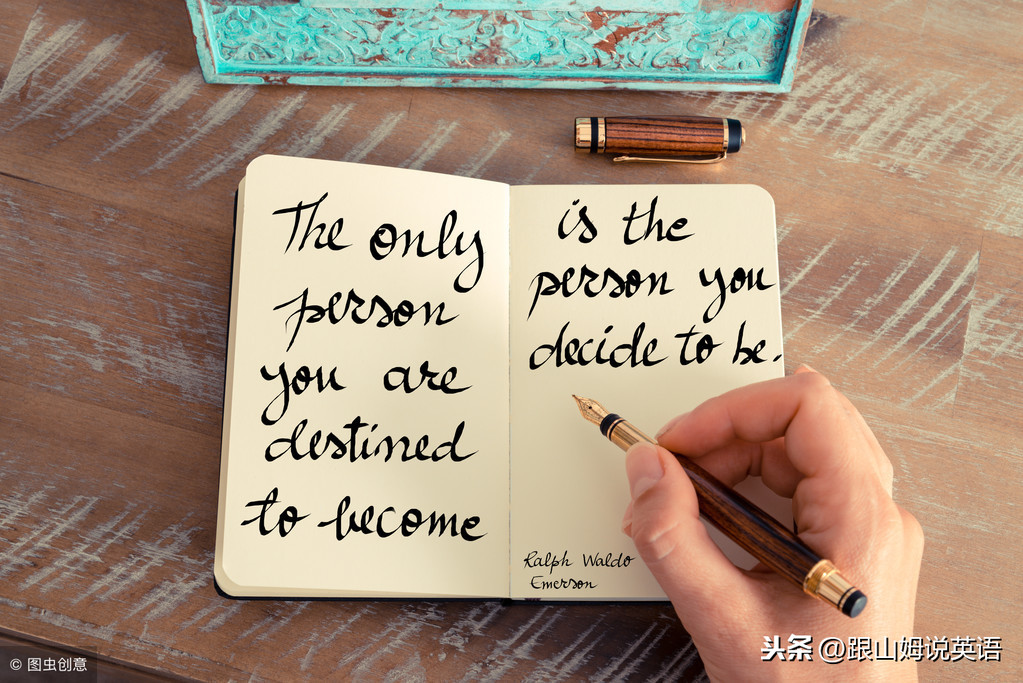 The only
person
you are
destined
to become
is the
person you
decide to be.
Ralph Waldo
Emerson
© 图虫创意
头条 @跟山姆说英语